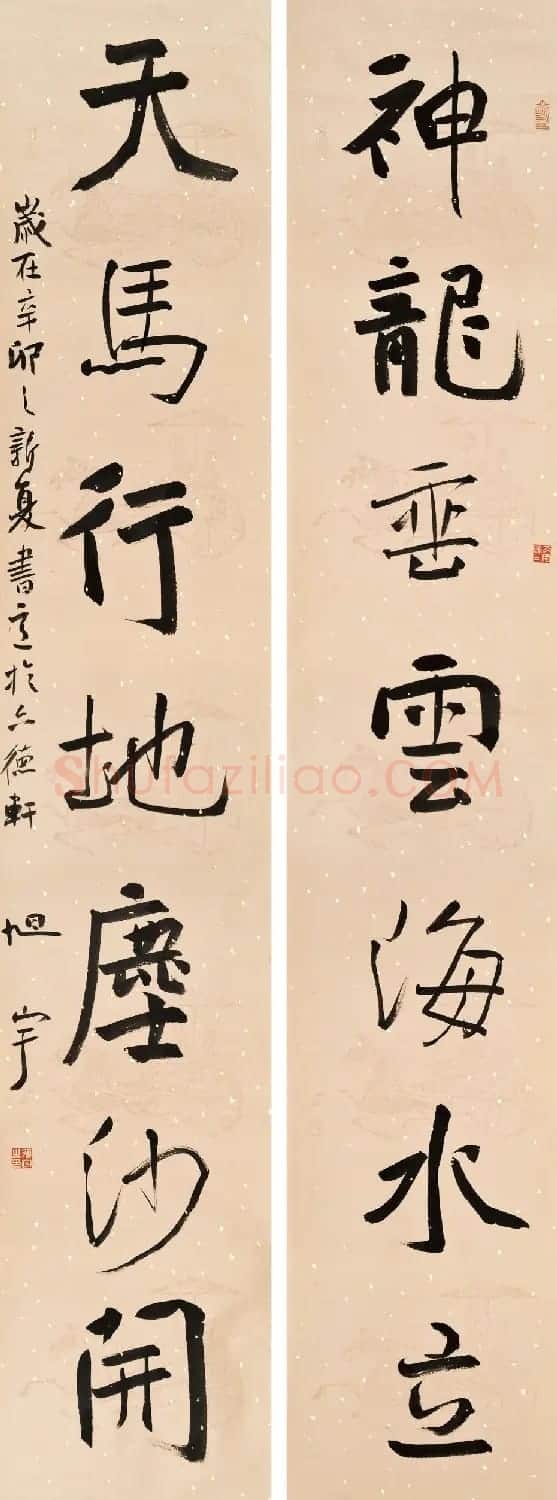 神龍垂雲海水立
天馬行地塵沙開
歲在辛卯之新夏書於六德軒
旭宇
Shufaziliao.COM